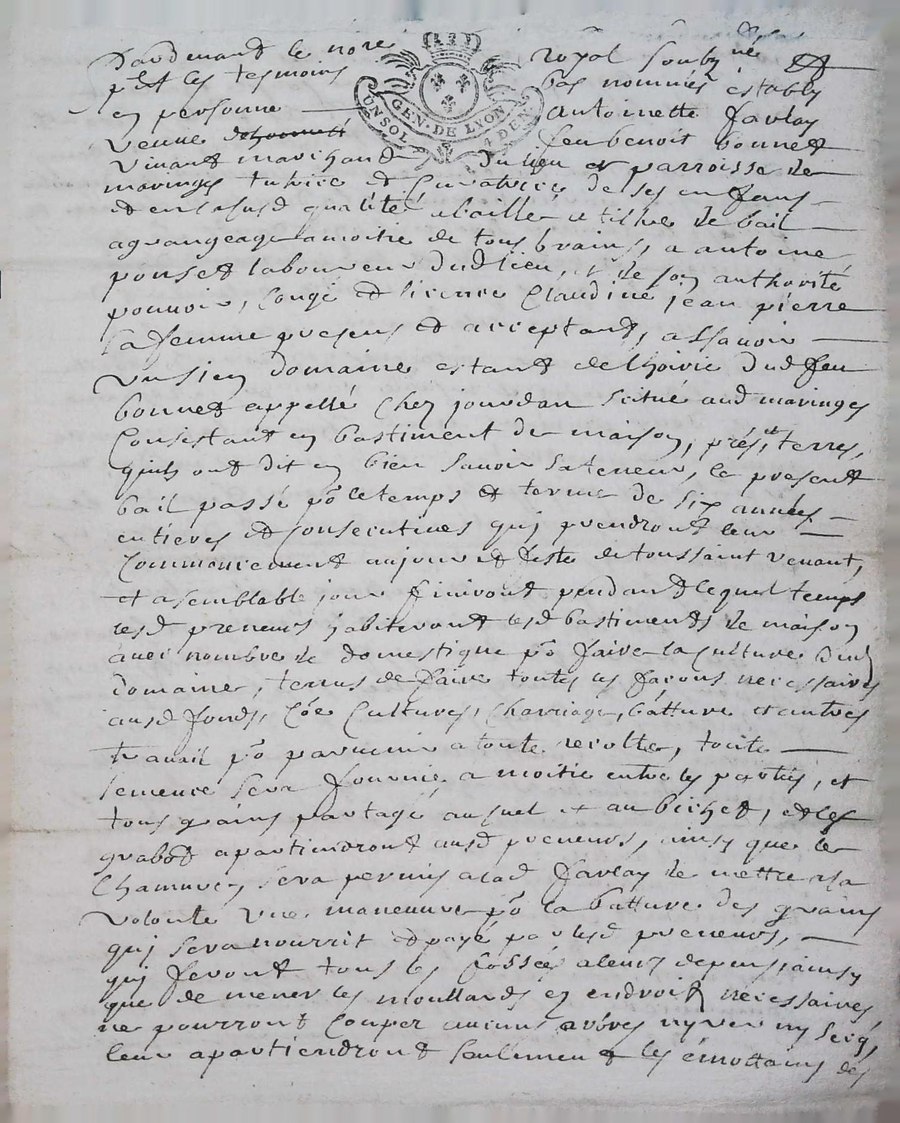 Pardevant le nore royal soubzné
pnt les tesmoins bas nommés establÿ
en personne Antoinette farlay
GEN · DE LYON
UN SOL 4 DEN
veuve de feu benoit bonnet
vivant marchand du lieu et parroisse de
maringes tutrice et curatrice de ses enfans
et en lad qualité abaillé a tiltre de bail
a grangeage a moitié de tous grains, a antoine
ponset laboureur dud lieu, et de son authorité
pouvoir, congé et licence Claudine jean pierre
sa femme presens et acceptans, assavoir
un sien domaine estant de lhoirie dud feu
bonnet appellé chez jourdan scitué aud maringes
Consistant en bastiment de maison, prés, et terres,
quils ont dit en bien savoir sa teneur, le present
bail passé po le temps et terme de six années
entieres et consecutives qui prendront leur
Commancement au jour et feste de toussaint venant,
et a semblable jour finiront pendant lequel temps
lesd preneurs jabiteront lesd bastiments de maison
avec nombre de domestique po faire la culture dud
domaine, tenus de faire toutes les façons necessaires
ausd fonds, Cõe Cultures, Charriage, batture et autres
travail po parvenir a toute recolte, toute
semence sera fournie a moitié entre les parties, et
tous grains partagé au suel et au bichet, et les
grabot apartiendront ausd preneurs, ainsy que le
Chamvre, sera permis a lad farlay de mettre a sa
volonté une maneuvre po la batture des grains
qui sera nourrit et payé par lesd preneurs,
qui feront tous les fossés a leurs depens ainsy
que de mener les moullards en endroit necessaires
ne pourront Couper aucuns arbres ny ver ny secq,
leur apartiendront seullement les émottains des